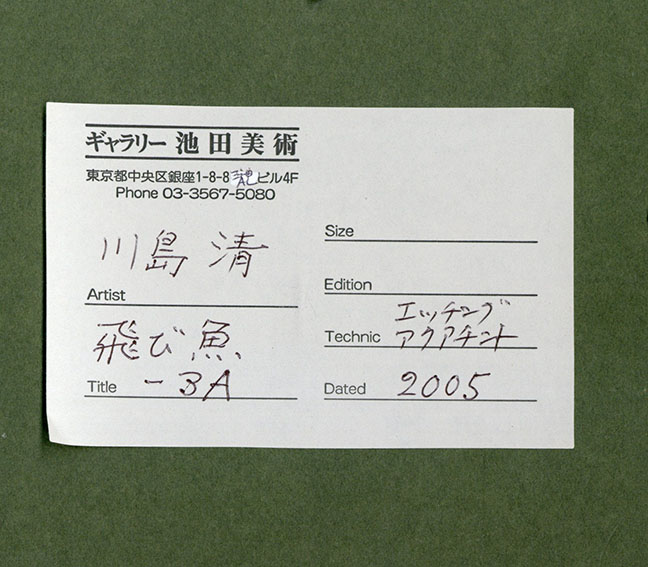 ギャラリー 池田美術
東京都中央区銀座1-8-8 ビル4F
Phone 03-3567-5080
川島 清
Artist
飛び魚
Title -3A
Size
Edition
エッチング
Technic アクアチント
Dated 2005